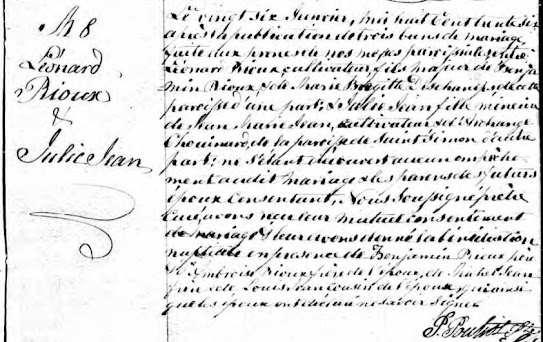 M 8
Léonard
Rioux
&
Julie Jean
Le vingt six Janvier, mil huit Cent trente six
après la publication de trois bans de mariage,
faite aux prones de nos messes paroissiales entre
Léonard Rioux, cultivateur, fils majeur de Benja
min Rioux, & de Marie Brigitte de cette
paroisse d'une part; & Julie Jean fille mineure
de Jean Marie Jean, cultivateur & de Archange
Chouinard, de la paroisse de Saint Simon d'autre
part; ne s'étant découvert aucun empêche
ment audit mariage & les parens des futurs
époux Consentant, Nous Soussigné prêtre
Curé, avons reçu leur mutuel consentement
de mariage & leur avons donné la bénédiction
nuptiale en présence de Benjamin Rioux père
& Ambroise Rioux frère de l'époux, de Jean
de Louis Jean cousin de l'épouse, qui ainsi
que les époux ont déclaré ne savoir signer.